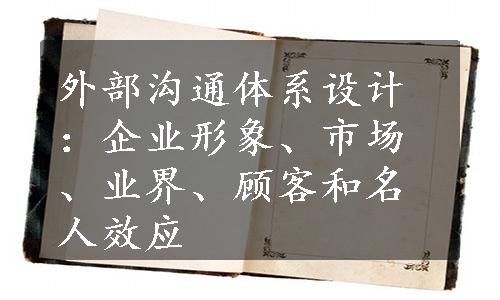 外部沟通体系设计
：企业形象、市场
、业界、顾客和名
人效应